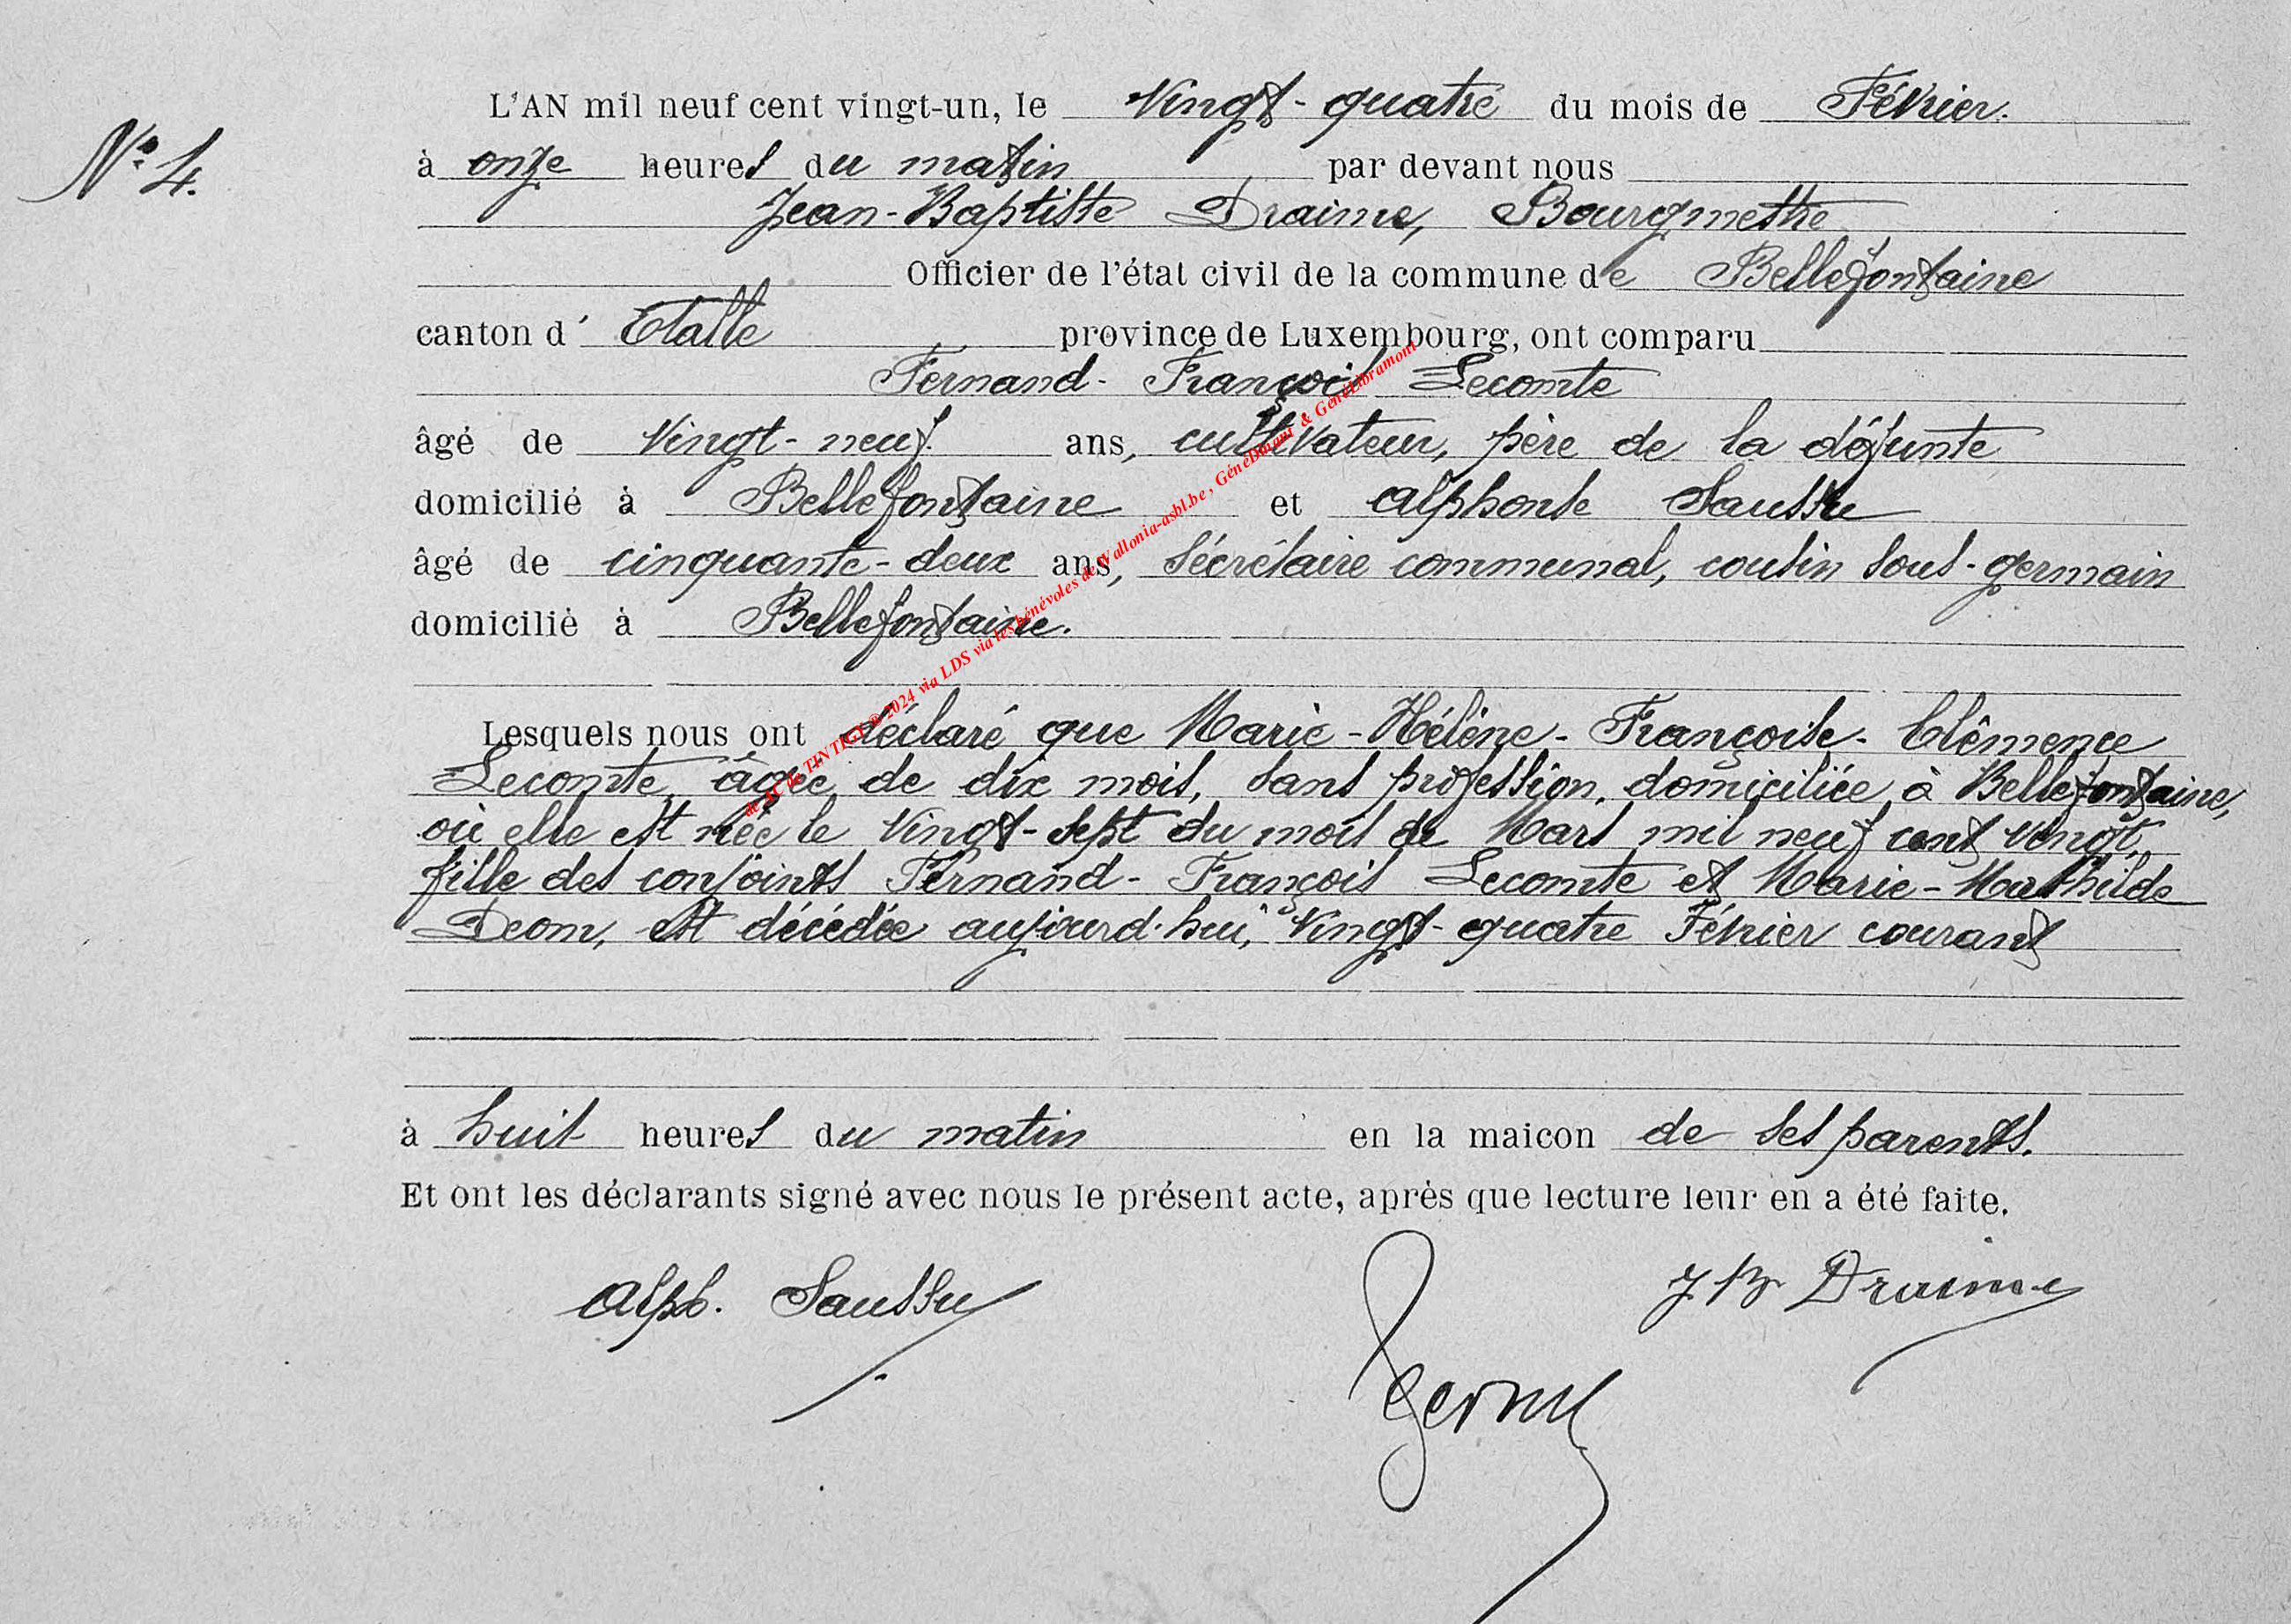 N° 4.
L'AN mil neuf cent vingt-un, le Vingt-quatre du mois de Février.
à onze heures du matin par devant nous
Jean-Baptiste Draime, Bourgmestre
Officier de l'état civil de la commune de Bellefontaine
canton d' Etalle province de Luxembourg, ont comparu
Fernand-François Lecomte
âgé de Vingt-neuf ans, cultivateur, père de la défunte
domicilié à Bellefontaine et Alphonse Saussu
âgé de cinquante-deux ans, sécrétaire communal, cousin sous-germain
domicilié à Bellefontaine.
Lesquels nous ont déclaré que Marie-Hélène-Françoise-Clêmence
Lecomte, âgée de dix mois, sans profession, domiciliée à Bellefontaine,
où elle est née le Vingt-sept du mois de Mars mil neuf cent vingt,
fille des conjoints Fernand-François Lecomte et Marie-Mathilde
Deom, est décédée aujourd'hui, Vingt-quatre Février courant
à huit heures du matin en la maicon de ses parents.
Et ont les déclarants signé avec nous le présent acte, après que lecture leur en a été faite.
Alph. Saussu
J B Draime
de AC de TINTIGY © 2024 via LDS via les bénévoles de Wallonia-asbl.be, GénéDinant & GénéLibramont